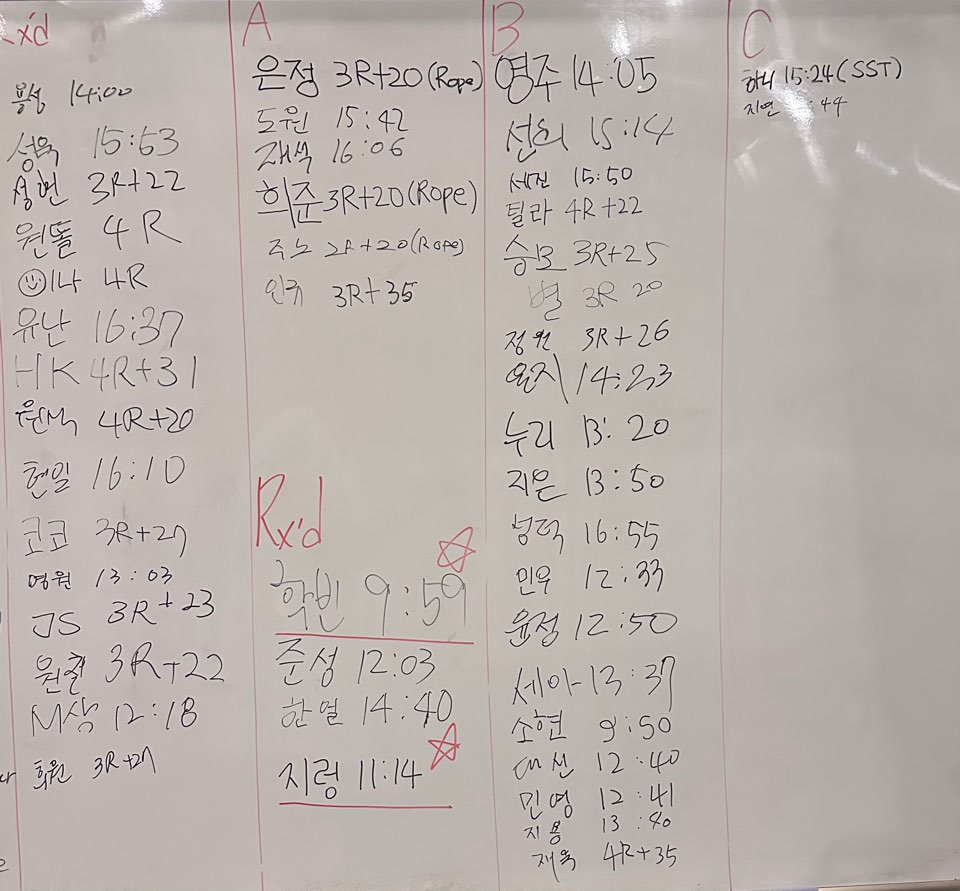 x'd
용성 14:00
성욱 15:53
성현 3R+22
원똘 4R
나 4R
유난 16:37
HK 4R+31
원석 4R+20
현일 16:10
코코 3R+27
영원 13:03
JS 3R+23
원철 3R+22
M상 12:18
희원 3R+27
A
은정 3R+20(Rope)
도원 15:42
재석 16:06
희준 3R+20(Rope)
주노 2R+20(Rope)
인규 3R+35
Rx'd
학빈 9:59
준성 12:03
한열 14:40
지렁 11:14
B
영주 14:05
선희 15:14
세진 15:50
틸라 4R+22
승모 3R+25
별 3R 20
정원 3R+26
윤지 14:23
누리 13:20
지은 13:50
성덕 16:55
민우 12:33
윤정 12:50
세아 13:37
소현 9:50
대선 12:40
민영 12:41
지용 13:40
재욱 4R+35
C
하니 15:24(SST)
지연 :44